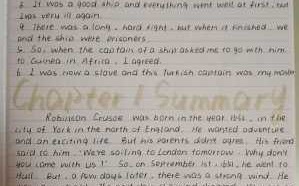 3. It was a good ship and everything went well at first, but
I was very ill again.
4. There was a long, hard fight, but when it finished, we
and the ship were prisoners.
5. So, when the captain of a ship asked me to go with him
to Guinea in Africa, I agreed.
6. I was now a slave and this Turkish captain was my
Chapter 1 Summary
Robinson Crusoe was born in the year 1632, in the
city of York in the north of England. He wanted adventure
and an exciting life. But his parents didn't agree. His friend
said to him, "We're sailing to London tomorrow. Why don't
you come with us?" So, on September 1st, 1651, he went to
Hull. But, a few days later, there was a strong wind. He